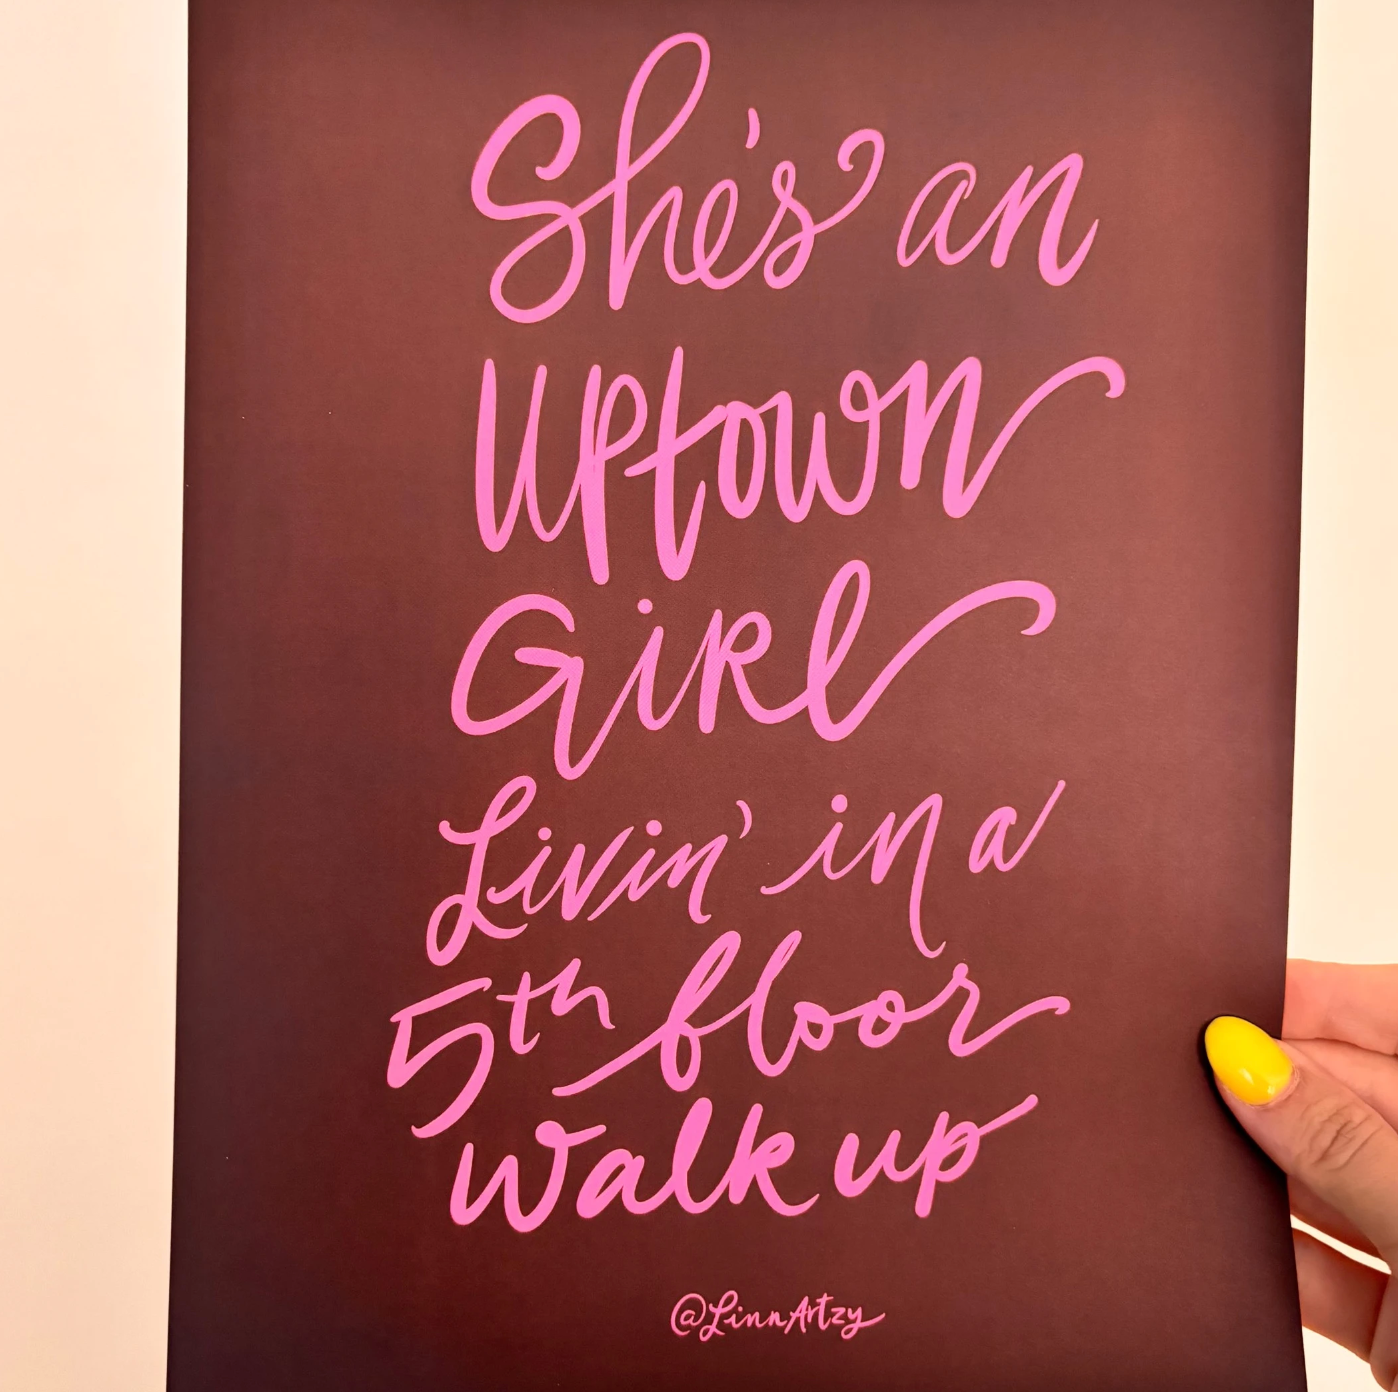 She's an
Uptown
Girl
Livin' in a
5th floor
walk up
@LinnArtzy